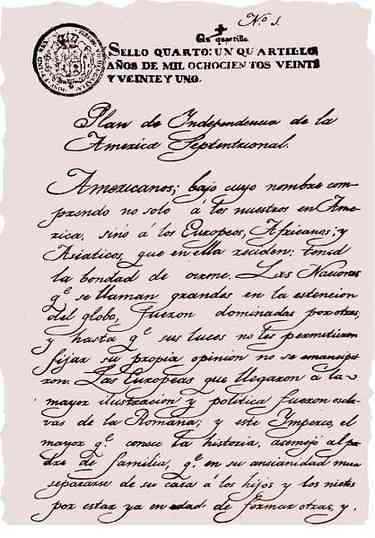 N.º 1.
Un quartillo.
SELLO QUARTO: UN QUARTILLO,
AÑOS DE MIL OCHOCIENTOS VEINTE
Y VEINTE Y UNO.
Plan de Independencia de la
America Septentrional.
Americanos; bajo cuyo nombre com-
prendo no solo á los nuestros en Ame-
rica, sino á los Europeos, Africanos; y
Asiaticos, que en ella reciden; tened
la bondad de oirme. Las Naciones
q.º se llaman grandes en la estencion
del globo, fueron dominadas por otras;
y hasta q.º sus luces no les permitieron
fijar su propia opinion no se emancipa-
ron. Las Europeas que llegaron á la
mayor ilustracion y politica fueron escla-
vas de la Romana; y este Imperio, el
mayor q.º conoce la historia, asemejó al pa-
dre de familia, q.º en su ansianidad mira
separarse de su casa á los hijos y los nietos
por estar ya en edad de formar otras, y